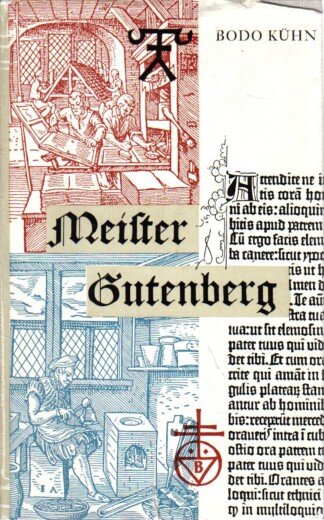 BODO KÜHN
Meiſter
Gutenberg
Attendite ne
tis corā ho
ab eis: alioqui
bitis apud patrem
Cū ergo facis elem
ba canere: ſicut ypo
ut h
Te aut
tua
tua: ut ſit elemoſin
pater tuus qui vid
det tibi. Et cum or
crite qui amāt in ſ
gulis ſtan
antur ab hominib
bis: receperūt merced
intra cub
oſtio ora patrem t
pater tuus qui vid
det tibi. Orantes a
loqui: ſicut ethnici
in multiloquio
B